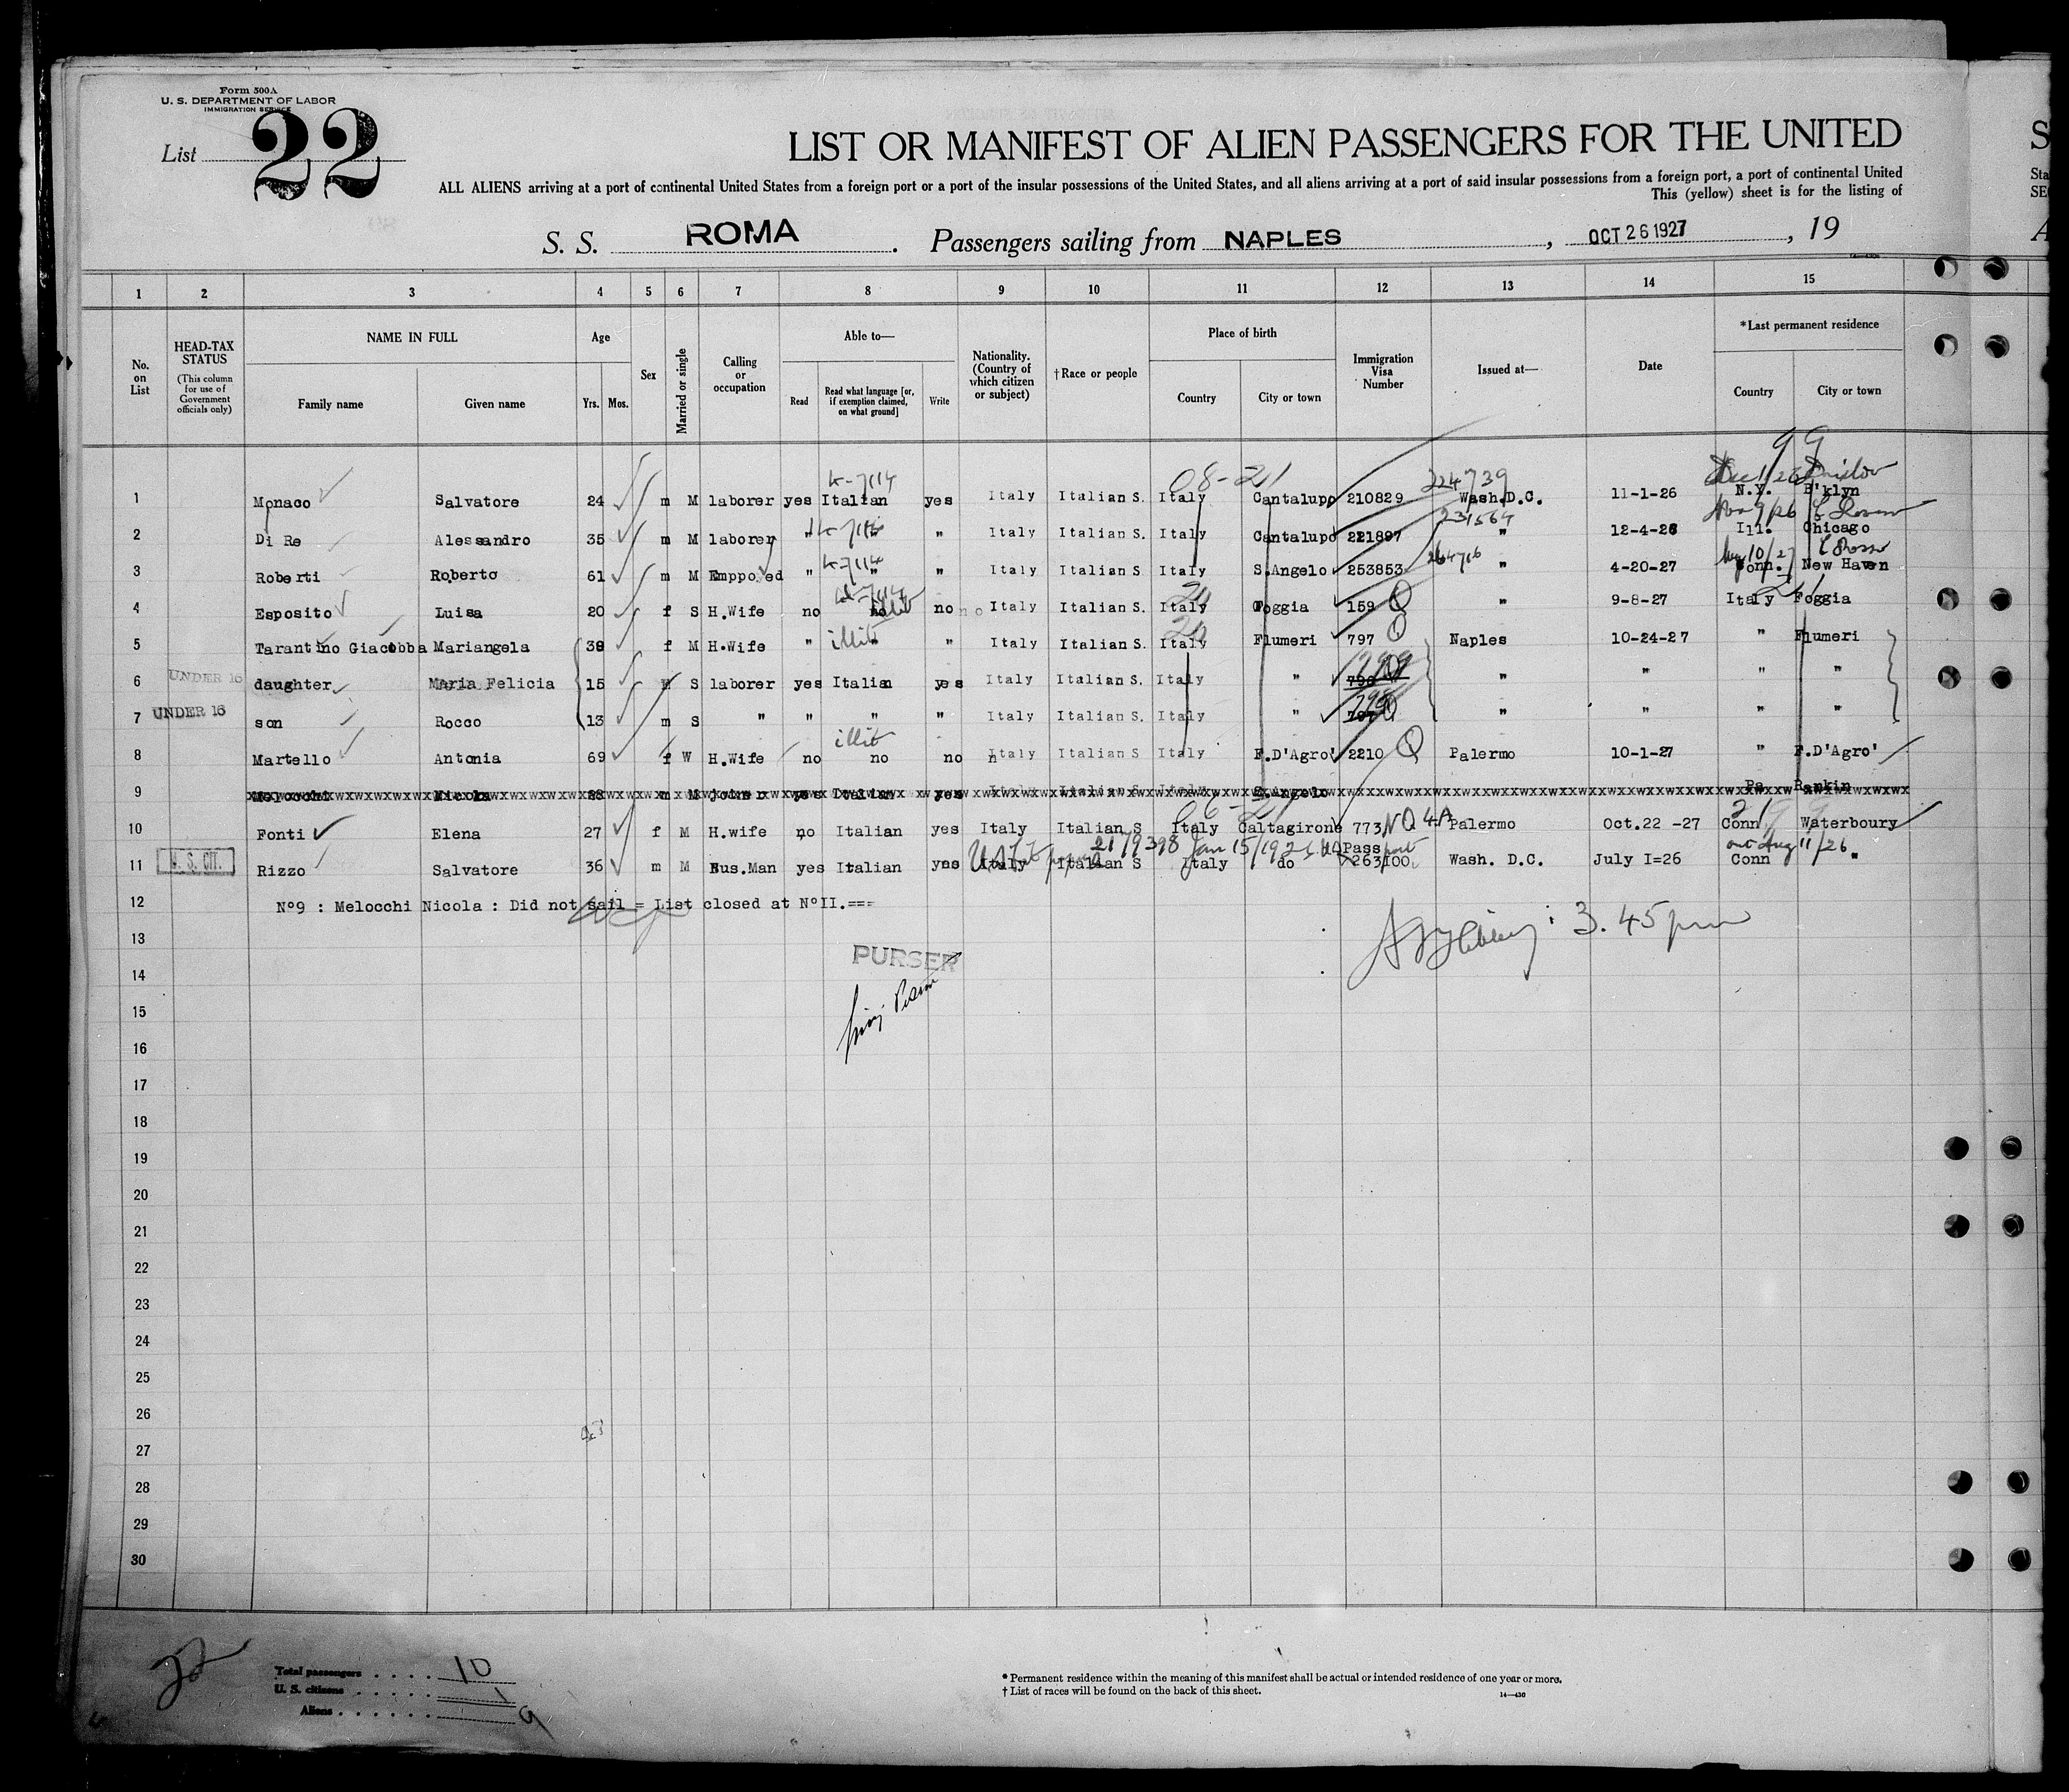 Form 500A
U. S. DEPARTMENT OF LABOR
IMMIGRATION SERVICE
List 22
LIST OR MANIFEST OF ALIEN PASSENGERS FOR THE UNITED
ALL ALIENS arriving at a port of continental United States from a foreign port or a port of the insular possessions of the United States, and all aliens arriving at a port of said insular possessions from a foreign port, a port of continental United
This (yellow) sheet is for the listing of
S. S. ROMA. Passengers sailing from NAPLES, OCT 26 1927, 19
1 2 3 4 5 6 7 8 9 10 11 12 13 14 15
No. on List
HEAD-TAX STATUS (This column for use of Government officials only)
NAME IN FULL
Family name
Given name
Age
Yrs. Mos.
Sex
Married or single
Calling or occupation
Able to—
Read
Read what language [or, if exemption claimed, on what ground]
Write
Nationality. (Country of which citizen or subject)
†Race or people
Place of birth
Country
City or town
Immigration Visa Number
Issued at—
Date
*Last permanent residence
Country
City or town
99
K-7114 08-21 224739 Dec 1/26
1 Monaco Salvatore 24 m M laborer yes Italian yes Italy Italian S. Italy Cantalupo 210829 Wash.D.C. 11-1-26 N.Y. B'klyn
K-7114 231564 Nov 9/26
2 Di Re Alessandro 35 m M laborer " " " Italy Italian S. Italy Cantalupo 221897 " 12-4-26 Ill. Chicago
K-7114 264716 10/27
3 Roberti Roberto 61 m M Emppo.ed " " " Italy Italian S Italy S.Angelo 253853 " 4-20-27 Conn. New Haven
4 Esposito Luisa 20 f S H.Wife no no no no Italy Italian S. Italy Foggia 159 Q " 9-8-27 Italy Foggia
5 Tarantino Giacobba Mariangela 39 f M H.Wife " illit " " Italy Italian S. Italy Flumeri 797 Q Naples 10-24-27 " Flumeri
6 UNDER 16 daughter Maria Felicia 15 S laborer yes Italian yes Italy Italian S. Italy " " " " "
7 UNDER 16 son Rocco 13 m S " " " " Italy Italian S. Italy " " " " "
illit
8 Martello Antonia 69 f W H.Wife no no no Italy Italian S Italy F.D'Agro' 2210 Q Palermo 10-1-27 " F.D'Agro'
9 Melocchi Nicola m M joiner yes Italian yes Italy Italian S Italy S.Angelo Pa Rankin
10 Fonti Elena 27 f M H.wife no Italian yes Italy Italian S Italy Caltagirone 773 NQ 4A Palermo Oct.22 -27 Conn Waterboury
Pass out Aug 11/26
11 U. S. CIT. Rizzo Salvatore 36 m M Bus.Man yes Italian yes Italy Italian S Italy do 263100 Wash. D.C. July I=26 Conn "
12 Nº9 : Melocchi Nicola : Did not sail = List closed at NºII.===
13
3.45 pm
PURSER
14
15
16
17
18
19
20
21
22
23
24
25
26
27
28
29
30
Total passengers . . . . 10
U. S. citizens . . . . . 1
Aliens . . . . . . 9
* Permanent residence within the meaning of this manifest shall be actual or intended residence of one year or more.
† List of races will be found on the back of this sheet.
14—430